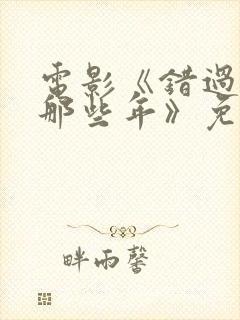 電影《錯過
那些年》免
畔雨馨